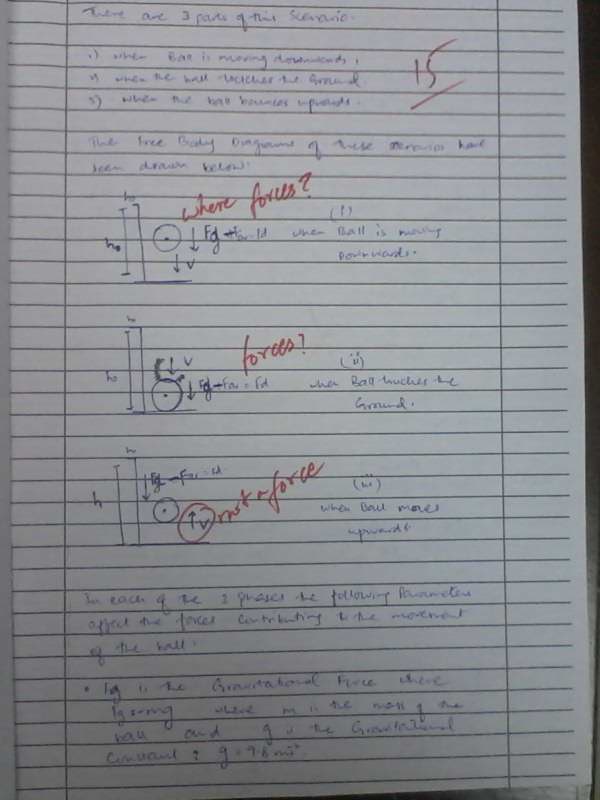 There are 3 parts of this Scenario.
1) when Ball is moving downwards.
2) when the ball touches the Ground.
3) when the ball bounces upwards.
15
The Free Body Diagrams of these scenarios have
been drawn below:
where forces?
h₀
(i)
when Ball is moving
Downwards.
V
forces?
h₀
V
(ii)
when Ball touches the
Ground.
h
not a force
V
(iii)
when Ball moves
upwards
In each of the 3 phases the following Parameters
affect the forces contributing to the movement
of the ball.
• Fg is the Gravitational Force where
Fg = mg where m is the mass of the
ball and g is the Gravitational
Constant g = 9.8